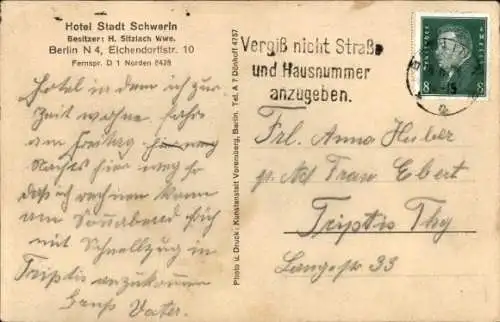 Hotel Stadt Schwerin
Besitzer: H. Sitzlach Wwe.
Berlin N 4, Eichendorffstr. 10
Fernspr. D 1 Norden 8428
Hotel in dem ich zur
Zeit wohne. fahre
am Freitag
Nachts hier weg so
daß ich rechnen kann
am Sonnabend früh
mit Schnellzug in
Triptis anzukommen
Gruß Vater.
Photo u. Druck: Kunstanstalt Vorenberg, Berlin. Tel. A 7 Dönhoff 4757
Vergiß nicht Straße
und Hausnummer
anzugeben.
8 8
Frl. Anna Huber
p. Ad Frau Ebert
Triptis Thg
Langestr 33